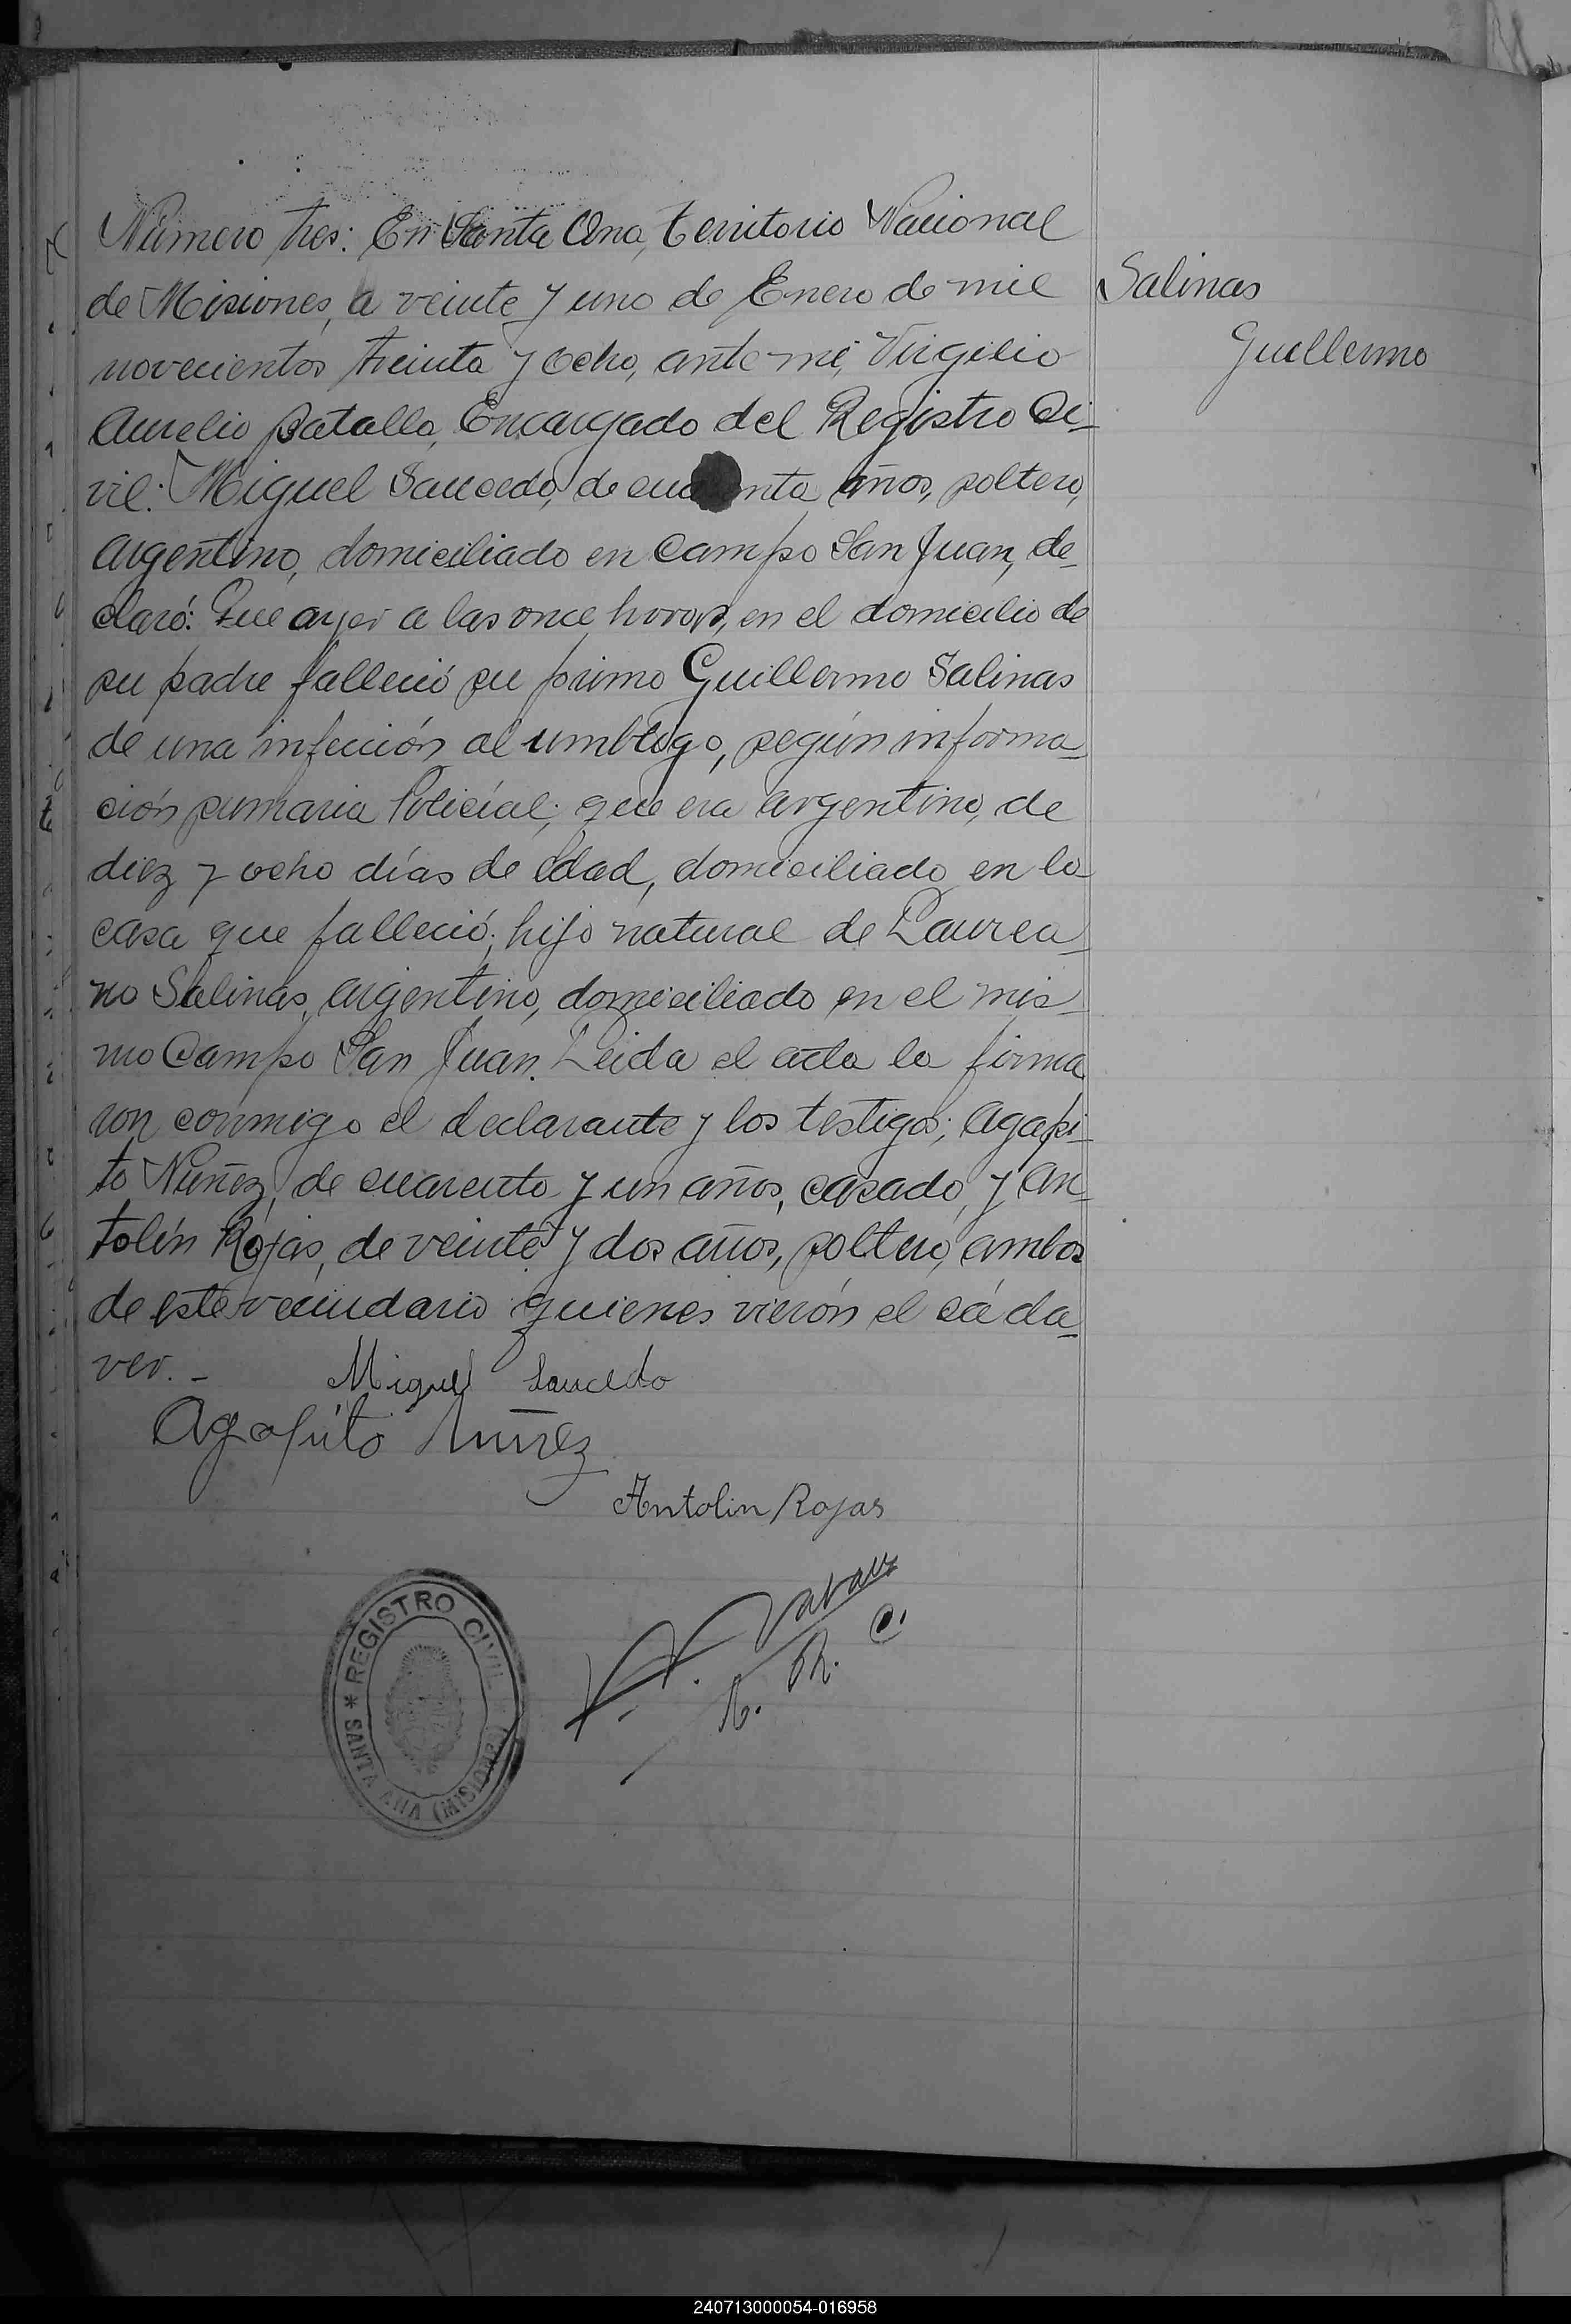 Número tres: En Santa Ana, territorio Nacional
de Misiones, a veinte y uno de Enero de mil
novecientos treinta y ocho, ante mí, Virgilio
Aurelio Batalla, Encargado del Registro Ci-
vil: Miguel Saucedo, de cua nta años, soltero,
argentino, domiciliado en Campo San Juan, de-
claró: Que ayer a las once horas, en el domicilio de
su padre falleció su primo Guillermo Salinas
de una infección al umbligo, según informa-
ción sumaria Policíal; que era argentino, de
diez y ocho días de edad, domiciliado en la
casa que falleció; hijo natural de Laurea-
no Salinas, argentino, domiciliado en el mis-
mo Campo San Juan. Leida el acta la firma
ron conmigo el declarante y los testigos; Agapi-
to Nuñez, de cuarenta y un años, casado, y An-
tolín Rojas, de veinte y dos años, soltero, ambos
de este vecindario quienes vierón el cáda-
ver.-
Miguel Saucedo
Agapito Nuñez
Antolin Rojas
REGISTRO CIVIL
* SANTA ANA (MISIONES)
Salinas
Guillermo
240713000054-016958